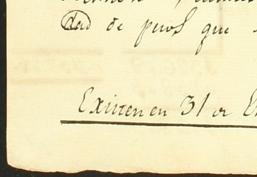 dad de pues que
Existen en 31 de E